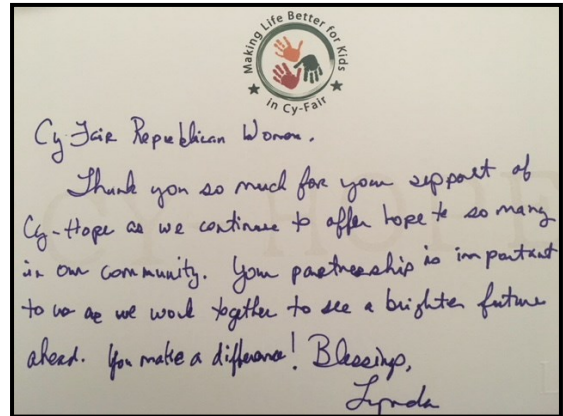 Making Life Better for Kids
in Cy-Fair
Cy-Fair Republican Women.
Thank you so much for your support of
Cy-Hope as we continue to offer hope to so many
in our community. Your partnership is important
to us as we work together to see a brighter future
ahead. You make a difference! Blessings,
Lynda
CY-HOPE